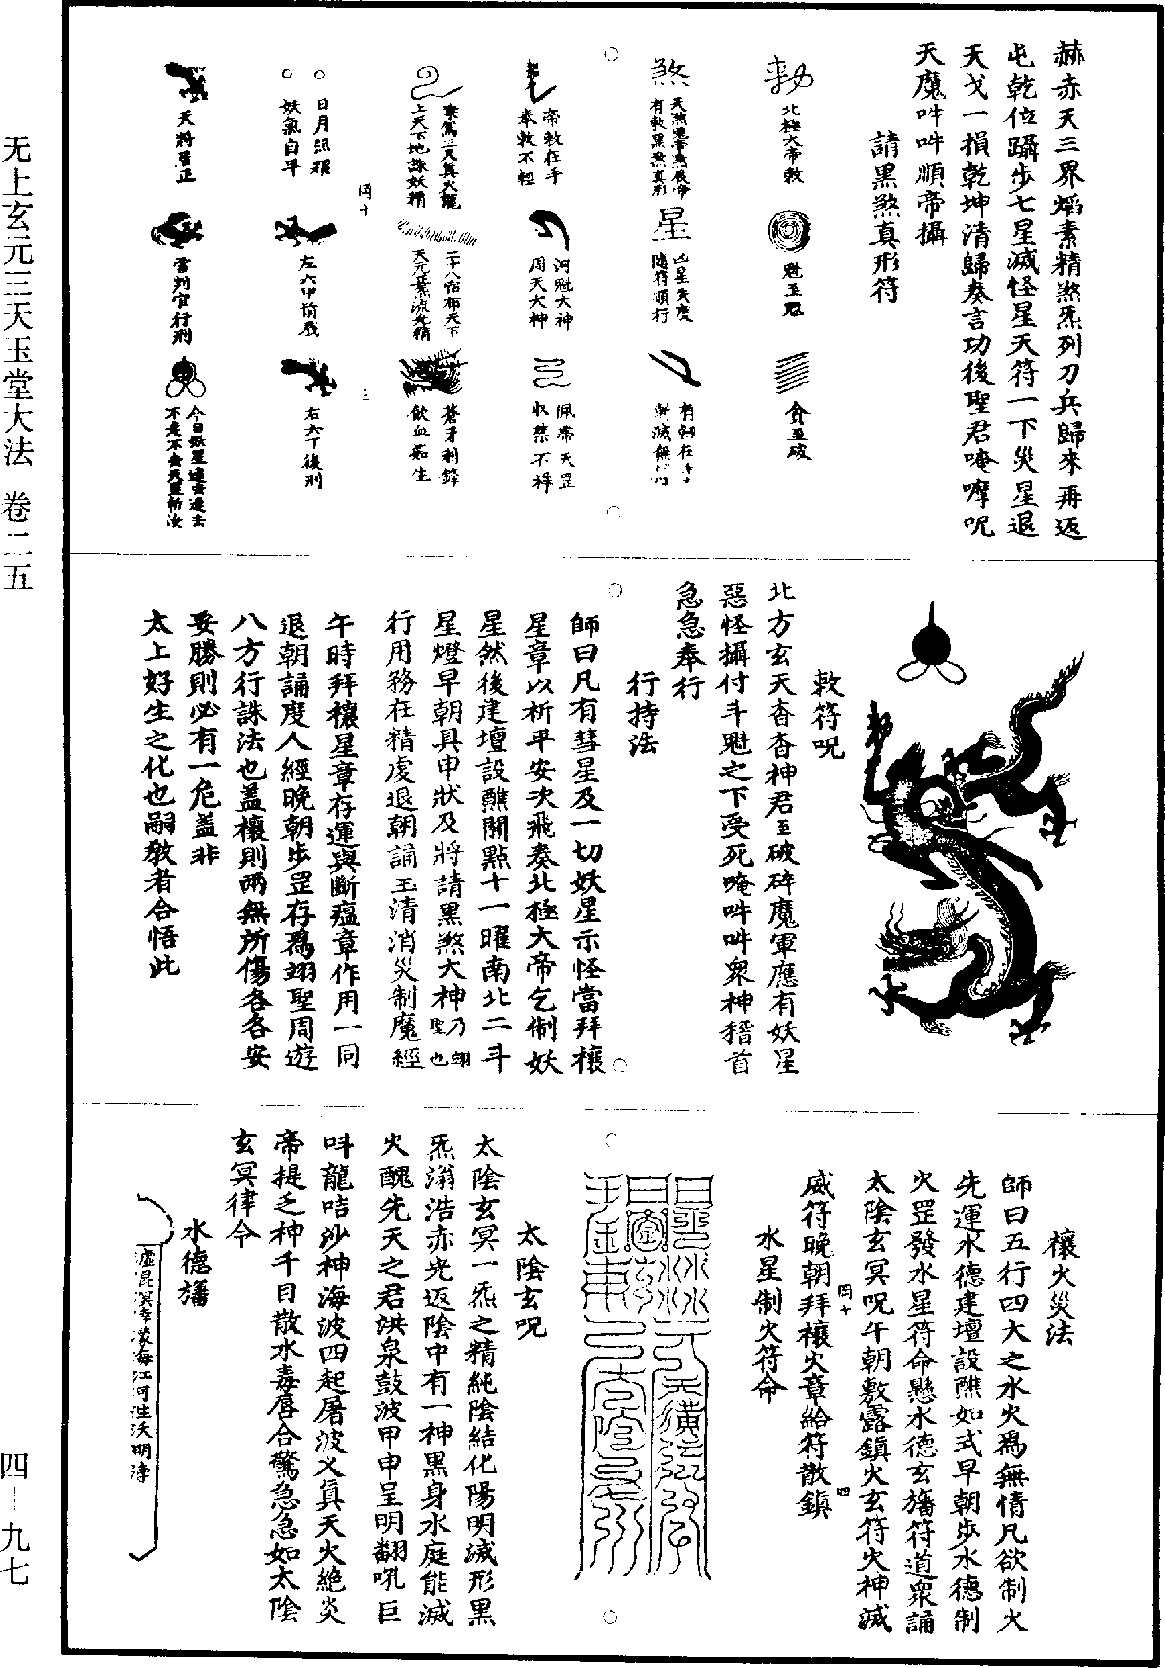 赫赤天三界熖素精煞炁列刀兵歸來再返
屯乾位躡步七星滅怪星天符一下災星退
天戈一損乾坤清歸奏言功後聖君唵㘕呪
天魔吽吽順帝攝
請黑煞真形符
勑
北極大帝敕
魁玉冠
貪至破
煞
有敕黑煞真形
星
凶星失度
隨符順行
帝敕在手
奉敕不輕
河魁大神
周天大神
佩帶天罡
收禁不祥
上天下地誅妖精
二十八宿布天下
蒼牙利鋒
飲血茹生
日月
妖氣自平
左六甲前戮
右六丁後刑
天將
雷判官行刑
今日妖星速去速去
敕符呪
北方玄天杳杳神君至破碎魔軍應有妖星
惡怪攝付斗魁之下受死唵吽吽衆神稽首
急急奉行
行持法
師曰凡有彗星及一切妖星示怪當拜禳
星章以祈平安次飛奏北極大帝乞制妖
星然後建壇設醮關點十一曜南北二斗
星燈早朝具申狀及將請黑煞大神乃翊聖也
行用務在精虔退朝誦玉清消災制魔經
午時拜禳星章存運與斷瘟章作用一同
退朝誦度人經晚朝步罡存爲翊聖周遊
八方行誅法也蓋禳則兩無所傷各各安
妥勝則必有一危蓋非
太上好生之化也嗣教者合悟此
禳火災法
師曰五行四大之水火爲無情凡欲制火
先運水德建壇設醮如式早朝步水德制
火罡發水星符命懸水德玄旛符道衆誦
太陰玄冥呪午朝敷露鎮火玄符火神滅
威符晚朝拜禳火章給符散鎮
水星制火符命
太陰玄呪
太陰玄冥一炁之精純陰結化陽明滅形黑
炁滃浩赤光返陰中有一神黑身水庭能滅
火醜先天之君洪泉鼓波甲申呈明翻吼巨
呌龍咭沙神海波四起屠波乂真天火絶炎
帝提乏神千目散水毒唇合驚急急如太陰
玄冥律令
水德旛
无上玄元三天玉堂大法 卷二五
四—九七